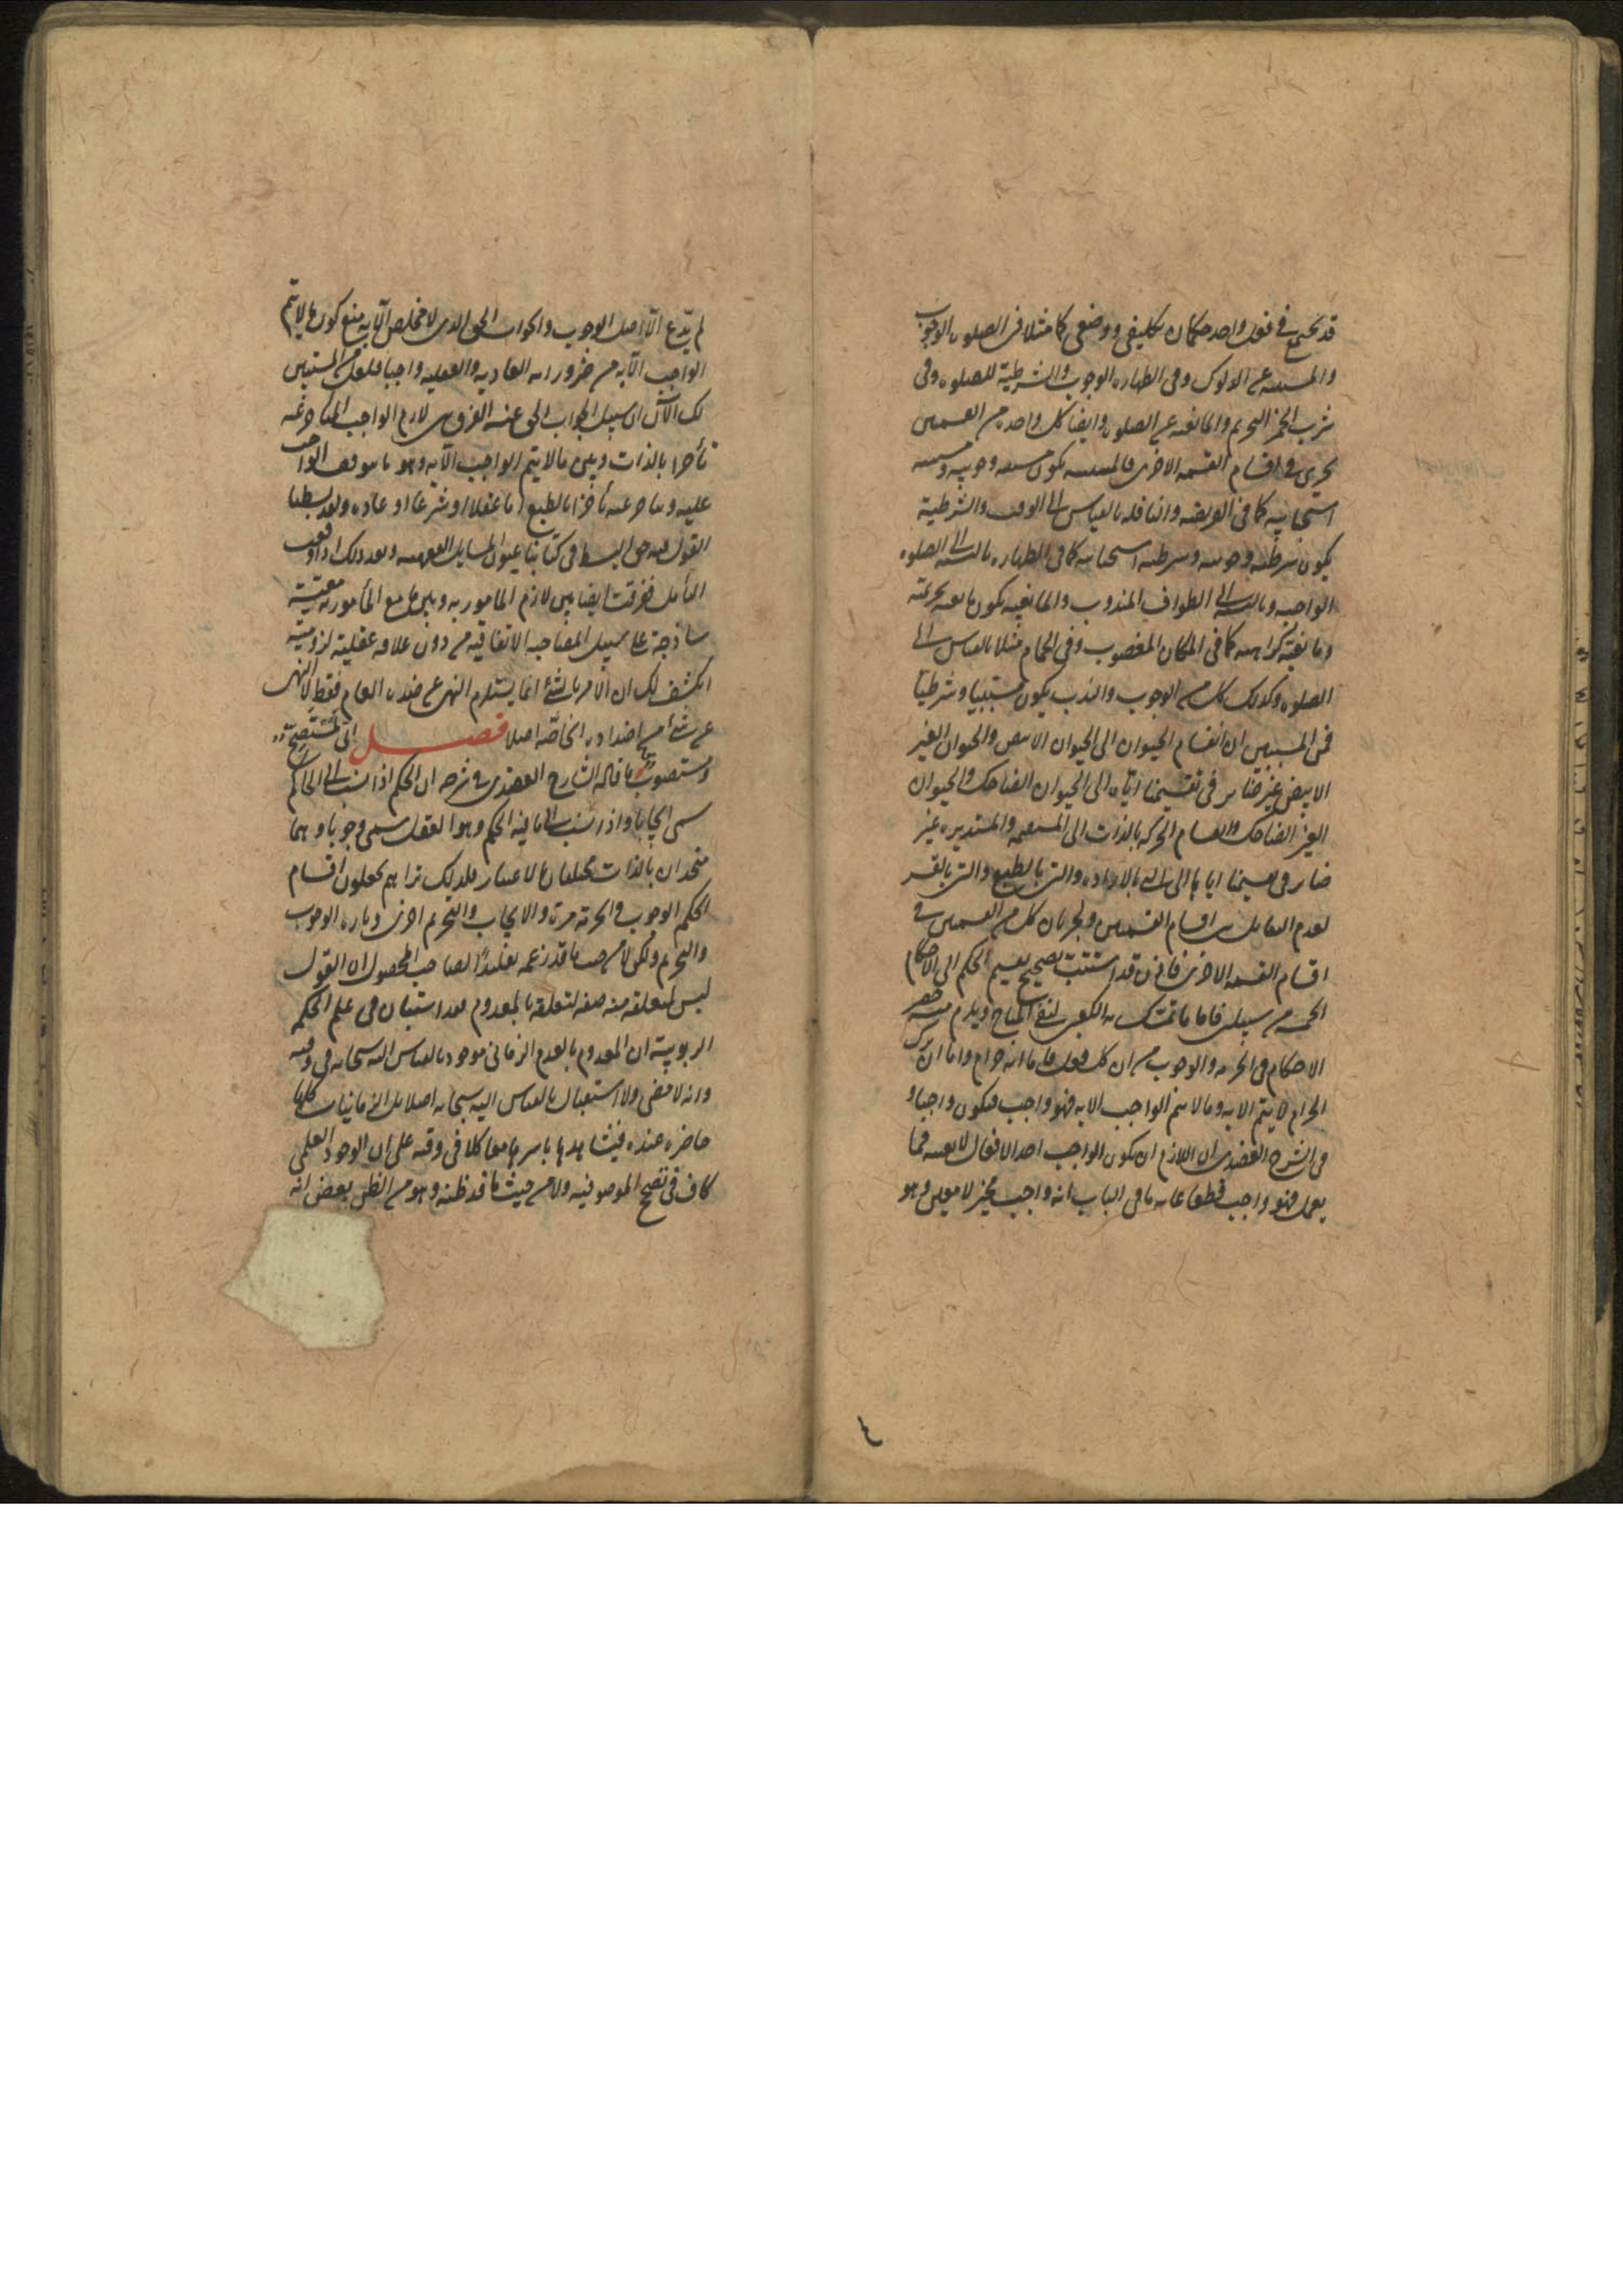 قد يجتمع في فعل واحد حكمان تكليفي ووضعي كما مثلا في الصلوه الوجوب
والمسببيه عن الدلوك وفى الطهاره الوجوب والشرطية للصلوه وفى
شرب الخمر التحريم والمانعيه عن الصلوه وايضا كل واحد من القسمين
يجرى في اقسام القسمه الاخرى فالمسببيه تكون مسببيه وجوبيه ومسببيه
استحبابيه كما فى الفريضه والنافله بالقياس الى الوقت والشرطية
يكون شرطيه وجوبيه وشرطيه استحبابيه كما فى الطهاره بالنسبه الى الصلوه
الواجبه وبالنسبه الى الطواف المندوب والمانعيه يكون مانعيه تحريميه
ومانعية كراهيه كما فى المكان المغصوب وفى الحمام مثلا بالقياس الى
الصلوه وكذلك كل من الوجوب والندب يكون مسببيا وشرطيا
فمن المستبين ان انقسام الحيوان الى الحيوان الابيض والحيوان الغير
الابيض غير ضائر فى تقسيمنا اياه الى الحيوان الضاحك والحيوان
الغير الضاحك وانقسام الحركه بالذات الى المستقيمه والمستديره غير
ضائر فى تقسيمنا اياها الى التى بالاراده والتى بالطبع والتى بالقسر
لعدم التقابل بين اقسام القسمين ولجريان كل من القسمين في
اقسام القسمه الاخرى فاذن قد استتب تصحيح تقسيم الحكم الى الاحكام
الخمسه من سبيلين فاما ما تمسك به الكعبى لنفى المباح ويلزم منه حصر
الاحكام فى الحرمه والوجوب من ان كل فعل فاما انه حرام واما ان ترك
الحرام لا يتم الا به وما لا يتم الواجب الا به فهو واجب فيكون واجبا و
فى الشرح العضدى ان اللازم ان يكون الواجب احد الافعال لا بعينه فما
يعمل فهو واجب قطعا غايه ما فى الباب انه واجب مخير لا معين وهو
٤
لم يدّع الّا اصل الوجوب والجواب الحق الذى لا مخلص الّا به منع كون ما لا يتم
الواجب الّا به من ضروراته العاديه والعقليه واجبا فلعل من المستبين
لك الآن ان سبيل الجواب الحق عنه الفرق بين لازم الواجب المتاخر عنه
تأخرا بالذات وبين ما لا يتم الواجب الّا به وهو ما يتوقف الواجب
عليه ويتاخر عنه تأخرا بالطبع اما عقلا او شرعا او عاده ولقد بسطنا
القول فيه حق البسط فى كتابنا عيون المسايل الفقهيه وبعد ذلك اذا
التأمل ففرقت ايضا بين لازم المامور به وبين ما مع المأمور به معيّة
ساذجة على سبيل المصاحبه الاتفاقيه من دون علاقه عقلية لزومية
انكشف لك ان الامر بالشئ انما يستلزم النهى عن ضده العام فقط لا النهى
عن شئ من اضداده الخاصّه اصلا فصل انى لمستصحّ
ومستصوب ما قاله الشارح العضدى فى شرحه ان الحكم اذا نسب الى الحاكم
سمى ايجابا واذا نسب الى ما فيه الحكم وهو الفعل سمى وجوبا وهما
متحدان بالذات مختلفان بالاعتبار فلذلك تراهم يجعلون اقسام
الحكم الوجوب والحرمة مرة والايجاب والتحريم اخرى وتاره الوجوب
والتحريم ولكن لا من حيث ما قد زعمه تقليدًا لصاحب المحصول ان القول
ليس لمتعلقه منه صفه لتعلقه بالمعدوم فقد استبان فى علم الحكمه
الربوبية ان المعدوم بالعدم الزمانى موجود بالقياس اليه سبحانه فى وقته
وانه لا مضى ولا استقبال بالقياس اليه سبحانه اصلا بل الزمانيات كلها
حاضره عنده فيشاهدها باسرها معا كلا فى وقته على ان الوجود العلمى
كاف فى تصحيح الموصوفيه ولا من حيث ما قد ظنه وهو من الظن بعض انه